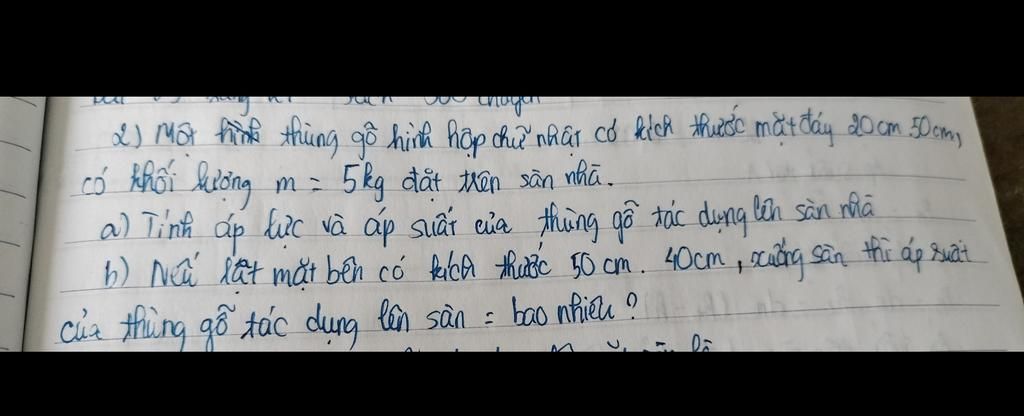 2) Một thùng gỗ hình hộp chữ nhật có kích thước mặt đáy 20cm 50cm,
có khối lượng m = 5kg đặt trên sàn nhà.
a) Tính áp lực và áp suất của thùng gỗ tác dụng lên sàn nhà
b) Nếu lật mặt bên có kích thước 50 cm. 40cm, xuống sàn thì áp suất
của thùng gỗ tác dụng lên sàn = bao nhiêu?